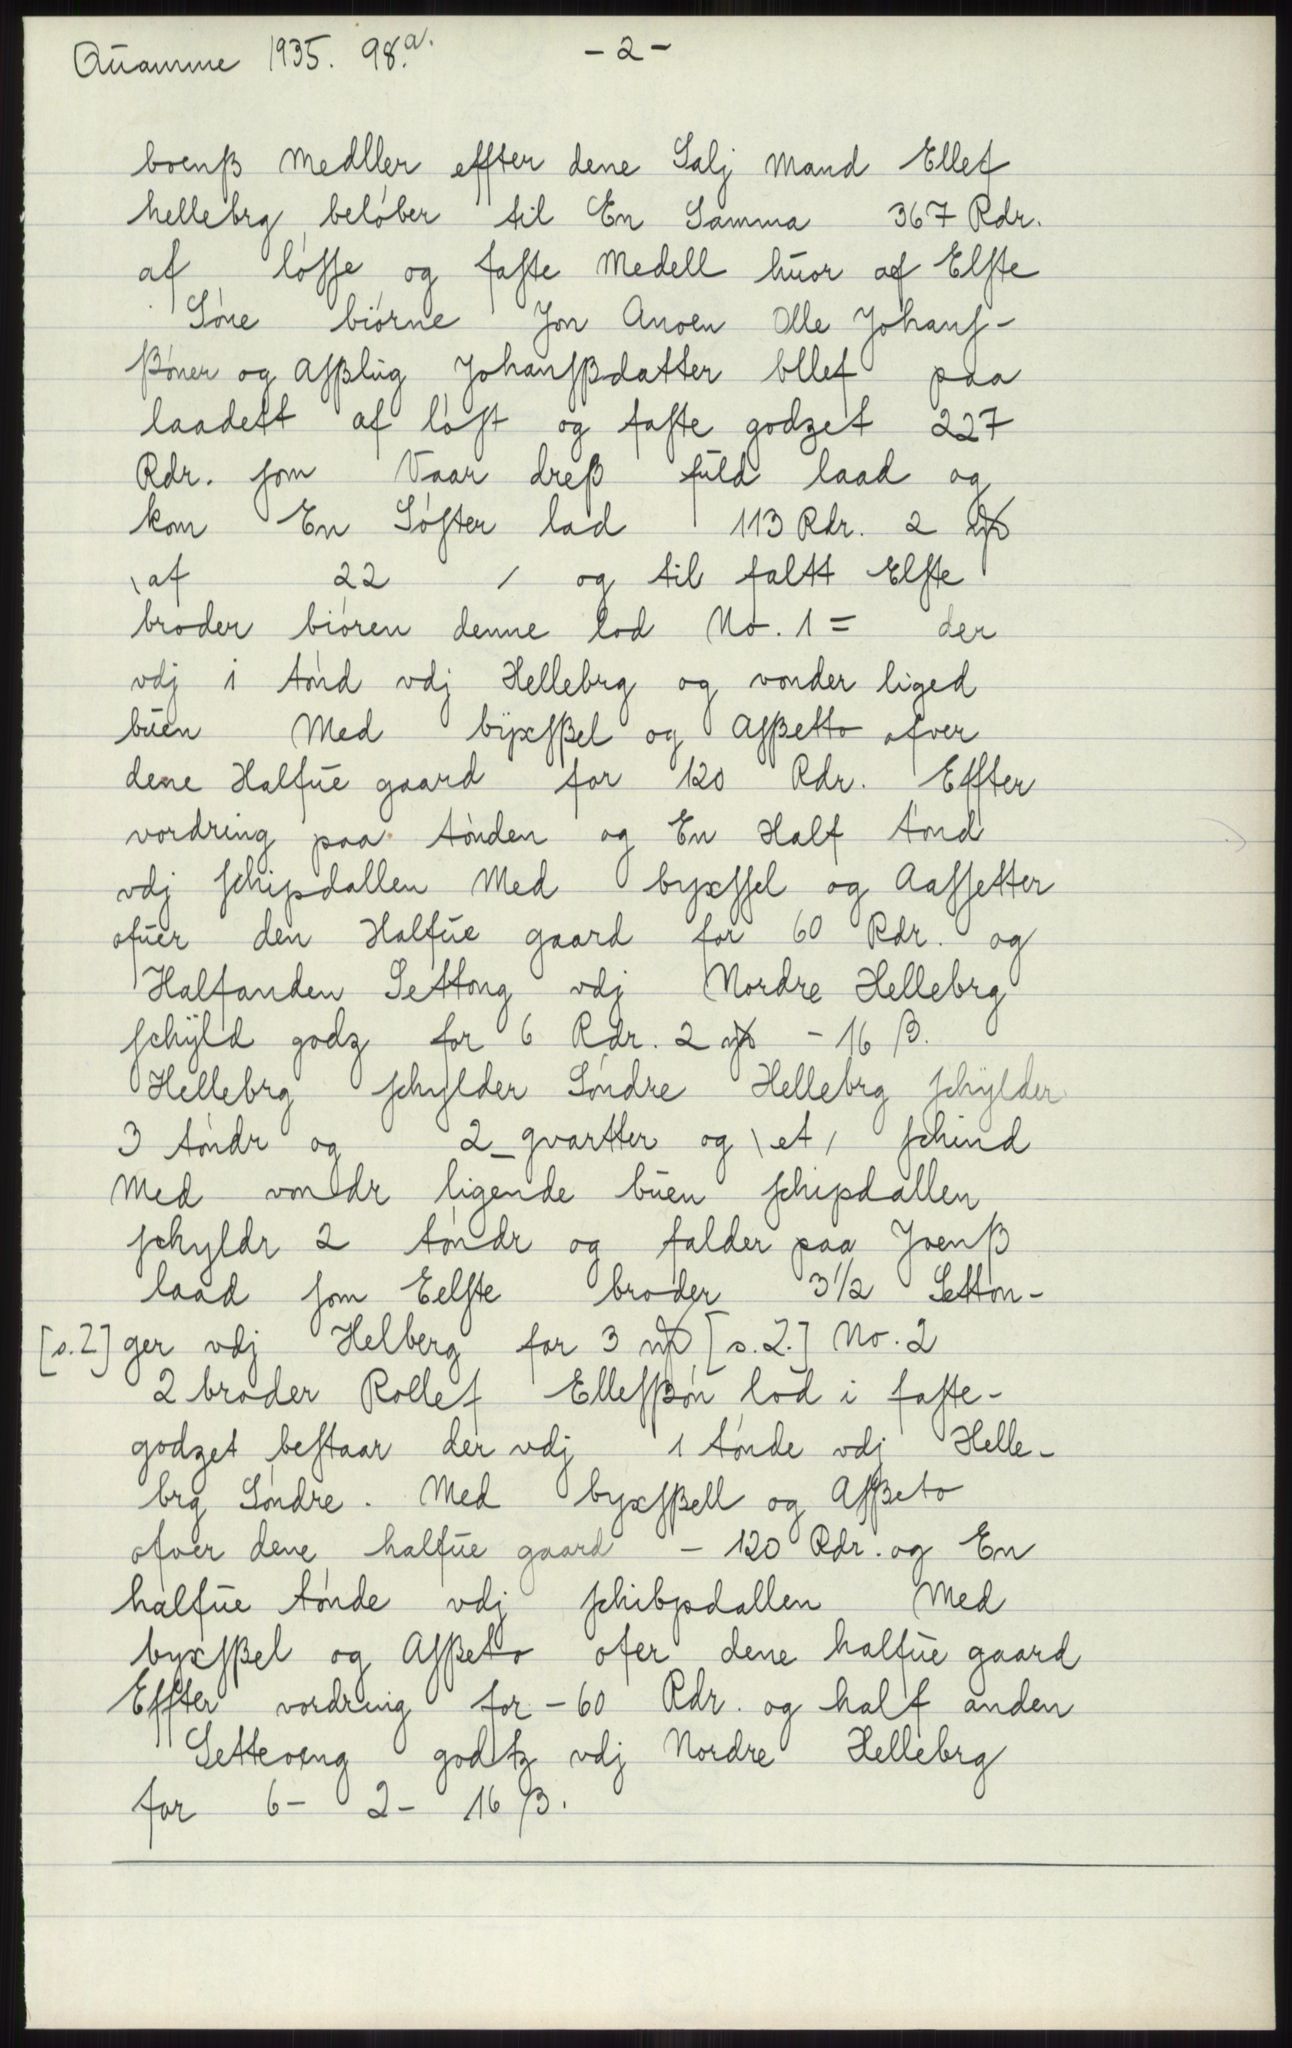 Quamme 1935. 98.a. - 2 -
boenß Medller effter dene Salj Mand Ellef
hellebrg beløber til En Samma 367 Rdr.
af løſſe og faſte Medell huor af Elſte
Søne biørne Jon Anoen Olle Johanſ-
ßøner og Aſßlug Johanſßdatter bllef paa
laadett af løſt og faſte godzet 227
Rdr. ſom Vaar dreß fuld laad og
kom En Søſter lad 113 Rdr. 2
\ af 22 / og til faltt Elſte
broder biøren denne lod No. 1 = der
vdj 1 tønd vdj Hellebrg og vonder liged
buen Med byxſßel og Aſßetto ofver
dene Halfue gaard for 120 Rdr. Effter
vordring paa tønden og En Half tønd
vdj ſchipdallen Med byxſſel og Aaſſetter
ofuer den Halfue gaard for 60 Rdr. og
Halfanden Settong vdj Nordre Hellebrg
ſchÿld godz for 6 Rdr. 2 - 16 ß.
Hellebrg ſchylder Søndre Hellebrg ſchÿlder
3 tøndr og 2 qvartter og \ et / ſchind
Med vondr ligende buen ſchipdallen
ſchyldr 2 tøndr og falder paa Jvenß
laad ſom Eelſte broder 3 1/2 Setton-
[s.2] ger vdj Helberg for 3 [s.2.] No. 2
2 broder Rollef Ellefſßøn lod i faſte-
godzet beſtaar der vdj 1 tønde vdj Helle-
brg Søndre. Med byxſßell og Aſßeto
ofver dene halfue gaard - 120 Rdr. og En
halfue tønde vdj ſchibpdallen Med
byxſßel og Aſßeto ofer dene halfue gaard
Effter vordring for - 60 Rdr. og half anden
Setteoeng godtz vdj Nordre Hellebrg
for 6 - 2 - 16 ß.